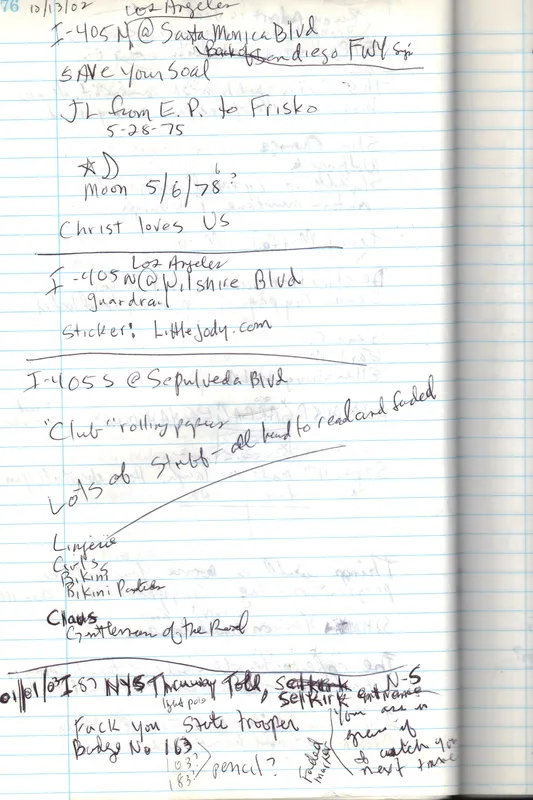 76 10/13/02 Los Angeles
I-405 N @ Santa Monica Blvd
Back of San diego FWY sign
SAVE your Soal
JL from E.P. to Frisko
5-28-75
Moon 5/6/78 6?
Christ loves Us
Los Angeles
I-405 N @ Wilshire Blvd
guardrail
Sticker: LittleJody.com
I-405 S @ Sepulveda Blvd
"Club" rolling papers
Lots of Stuff - all hard to read and faded
Lingerie
Girls
Bikini
Bikini Panties
Claus
Gentleman of the Road
01/01/03 I-87 NYS Thruway Toll, Selkirk entrance N-S
light pole
Fuck you State trooper
Badge No 163
103?
183?
pencil?
Faded marker
You are in
if
watch you
next time